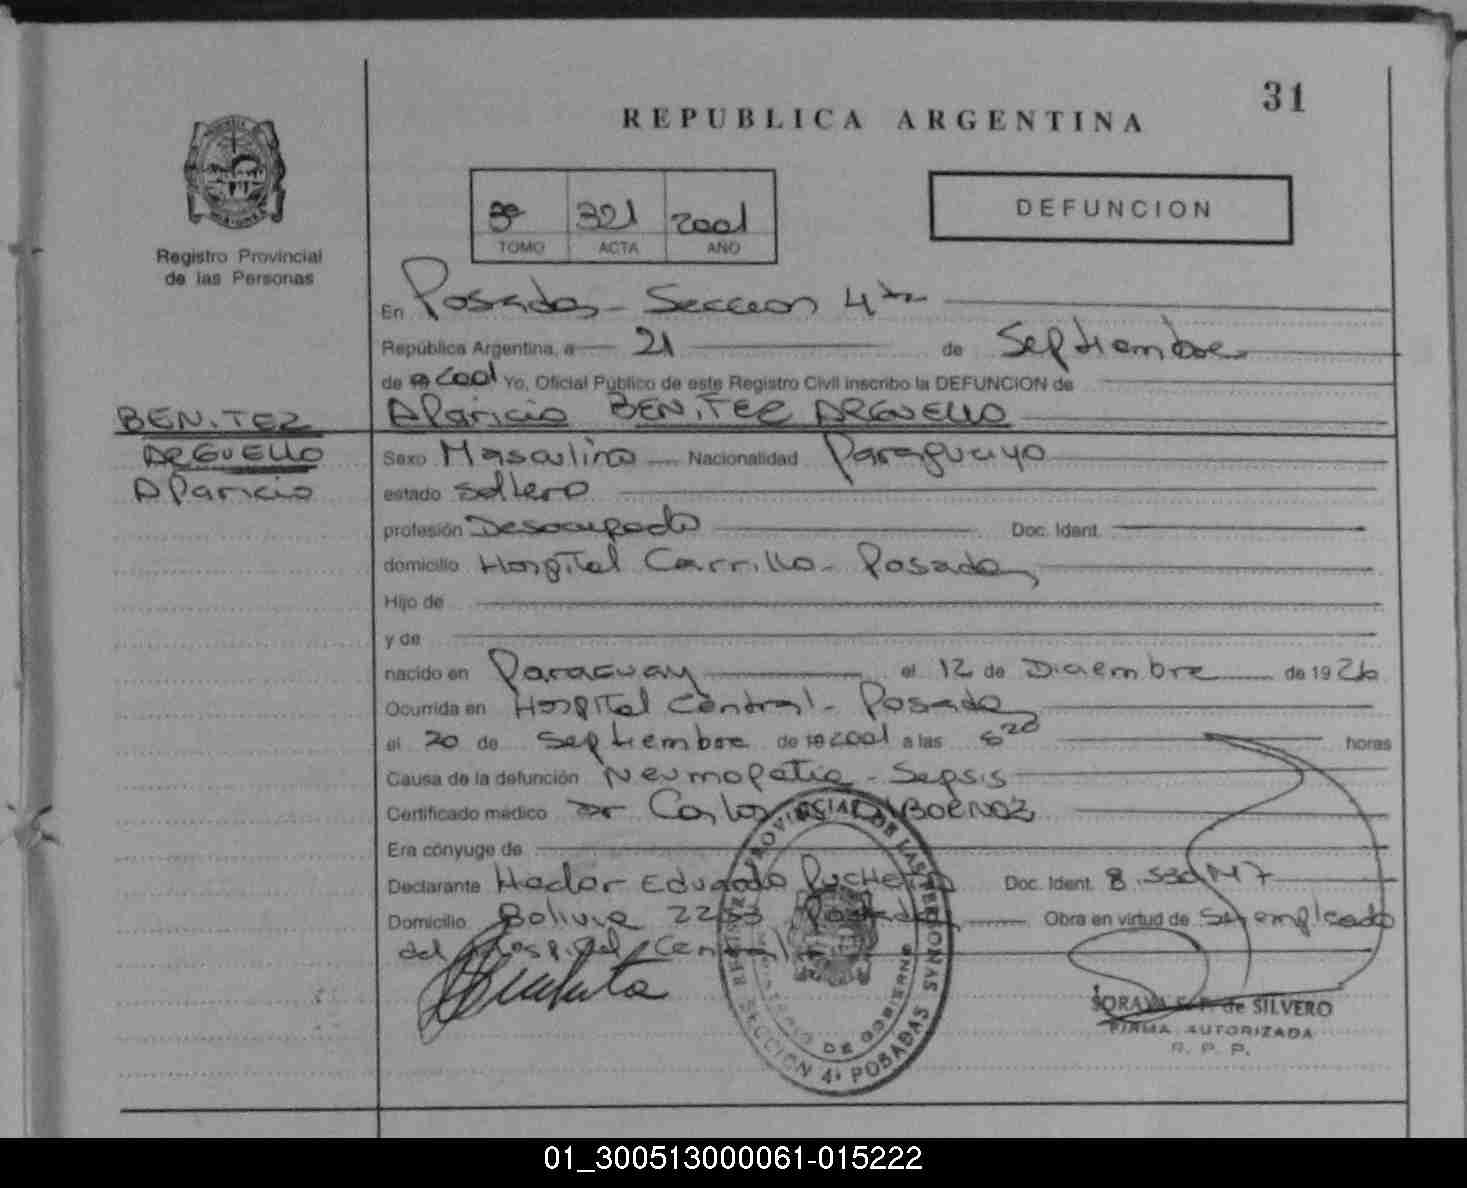 31
REPUBLICA ARGENTINA
3º 321 2001
TOMO ACTA AÑO
DEFUNCION
Registro Provincial
de las Personas
En Posadas - Seccion 4ta
República Argentina, a 21 de Septiembre
de 2001 Yo, Oficial Público de este Registro Civil inscribo la DEFUNCION de
BENITEZ Aparicio BENITEZ ARGUELLO
ARGUELLO Sexo Masculino Nacionalidad Paraguayo
Aparicio estado soltero
profesión Desocupado Doc. Ident.
domicilio Hospital Carrillo - Posadas
Hijo de
y de
nacido en Paraguay el 12 de Diciembre de 1926
Ocurrida en Hospital Central - Posadas
el 20 de Septiembre de 19 2001 a las 6 20 horas
Causa de la defunción Neumopatia - Sepsis
Certificado médico Dr Carlos
Era cónyuge de
Declarante Hector Eduardo Doc. Ident. 8.
Domicilio Bolivia 2253 Posadas Obra en virtud de Ser empleado
del Hospital Central
REGISTRO PROVINCIAL DE LAS PERSONAS
MINISTERIO DE GOBIERNO
SECCION 4ª POSADAS
SORAYA S. P. de SILVERO
FIRMA AUTORIZADA
R. P. P.
01_300513000061-015222